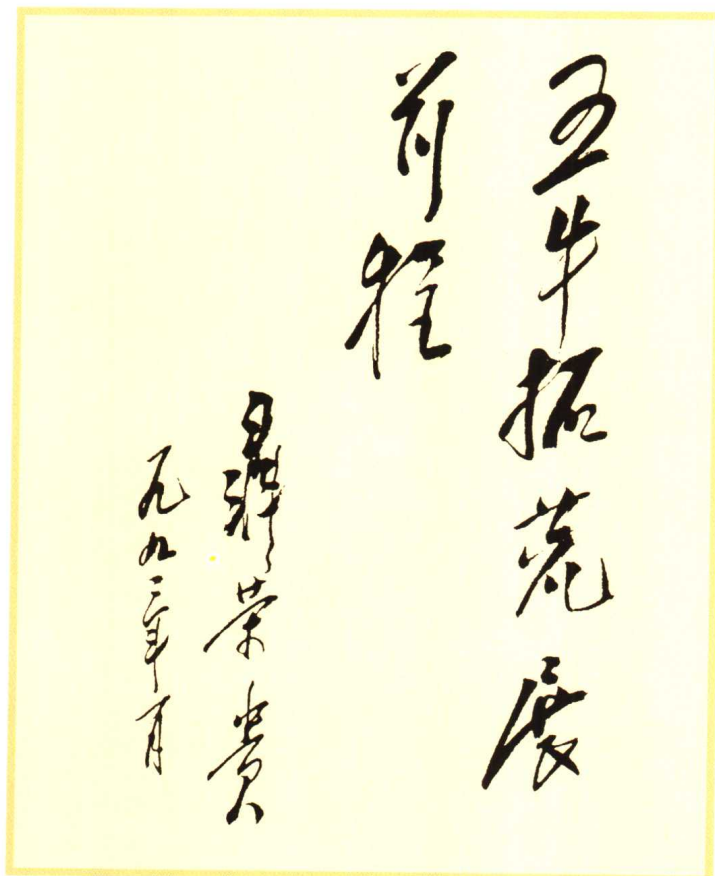 五牛拓荒展
前程
聂荣贵
一九九三年一月